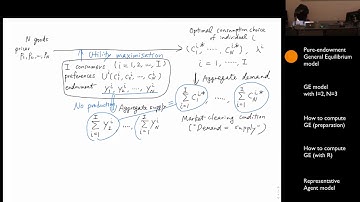 N goods
prices
P₁, P₂, ..., P_N
Utility maximisation
I consumers (i = 1, 2, ..., I)
preferences Uⁱ(C₁ⁱ, C₂ⁱ, ..., C_Nⁱ)
endowment Y₁ⁱ, Y₂ⁱ, ..., Y_Nⁱ
No production
Aggregate supply
Σ Y₁ⁱ, ..., Σ Y_Nⁱ
i=1 i=1
Optimal consumption choice
of individual i
(C₁ⁱ*, ..., C_Nⁱ*), λⁱ
i = 1, ..., I
Aggregate demand
Σ C₁ⁱ*, ..., Σ C_Nⁱ*
i=1 i=1
Market-clearing condition
("Demand = Supply")
Pure-endowment
General Equilibrium
model
GE model
with I=2, N=3
How to compute
GE (preparation)
How to compute
GE (with R)
Representative
Agent model